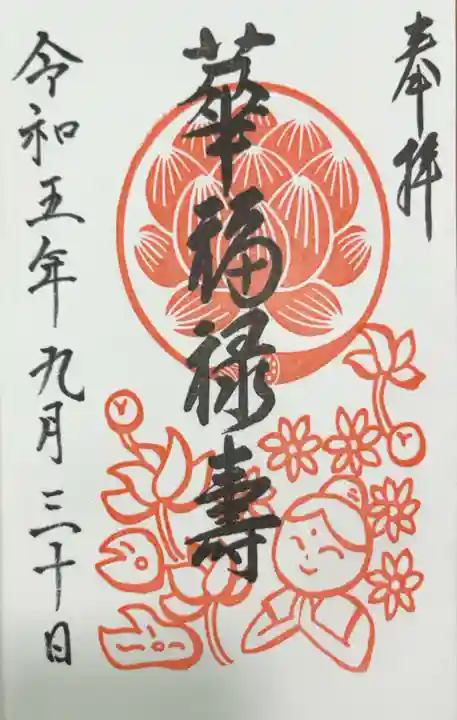 奉拝
華福禄壽
令和五年九月三十日